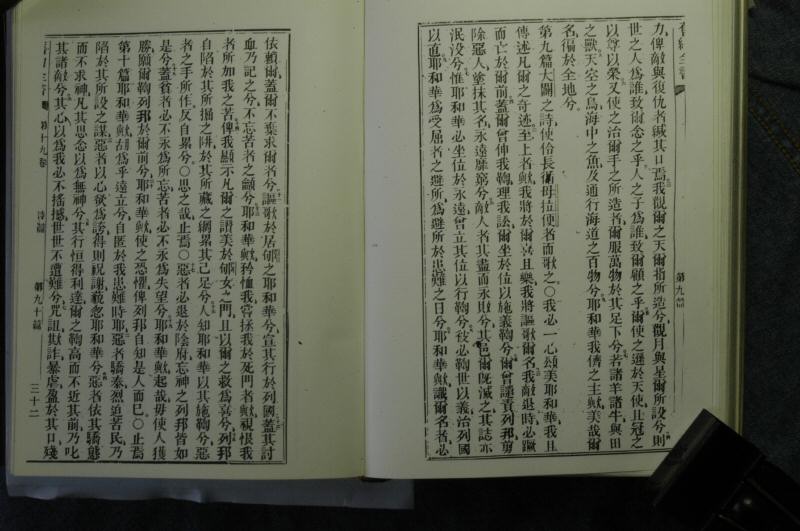 舊約全書
力俾敵與復仇者緘其口焉我觀爾之天爾指所造兮觀月與星爾所設兮則
世之人爲誰致爾念之乎人之子爲誰致爾顧之乎爾使之遜於天使且冠之
以尊以榮又使之治爾手之所造者爾服萬物於其足下兮若諸羊諸牛與田
之獸天空之鳥海中之魚及通行海道之百物兮耶和華我儕之主歟美哉爾
名徧於全地兮
第九篇大闢之詩使伶長衛母拉便者而歌之○我必一心頌美耶和華我且
傳述凡爾之奇迹至上者歟我將於爾喜且樂我將謳歌爾名我敵退時必蹶
而亡於爾前兮蓋爾曾伸我鞫理我訟爾坐於位以施義鞫兮爾曾譴責列邦剪
除惡人塗抹其名永遠靡窮兮敵人者其盡而永敗兮其邑爾既滅之其誌亦
泯沒兮惟耶和華必坐位於永遠曾立其位以行鞫兮彼必鞫世以義治列國
以直耶和華爲受屈者之避所爲避所於患難之日兮耶和華歟識爾名者必
第九篇
依賴爾蓋爾不棄求爾者兮謳歌於居郇之耶和華宣其行於列國蓋其討
血乃記之兮不忘苦者之籲兮耶和華歟矜恤我嘗拯我於死門者歟視恨我
者所加我之苦俾我顯示凡爾之讚美於郇女之門且以爾之救爲喜兮列邦
自陷於其所掘之阱於其所藏之網累其己足兮人知耶和華以其施鞫兮惡
者之手所作反自累兮○思之哉止焉○惡者必退於陰府忘神之列邦皆如
是兮蓋貧者必不永爲所忘苦者必不永爲失望兮耶和華歟起哉毋使人獲
勝願爾鞫列邦於爾前兮耶和華歟使之恐懼俾列邦自知是人而已○止焉
第十篇耶和華歟胡爲乎遠立兮自匿於我患難時耶惡者驕泰烈迫苦民乃
陷於其所設之謀惡者以心欲爲誇得則祝謝藐忽耶和華兮惡者依其驕態
而不求神凡其思念以爲無神兮其行恒得利達爾之鞫高而不近其前乃叱
其諸敵兮其心以爲我必不搖撼世世不遭難兮咒詛欺詐暴虐盈於其口殘
第十九卷
詩篇
第九十篇
三十二